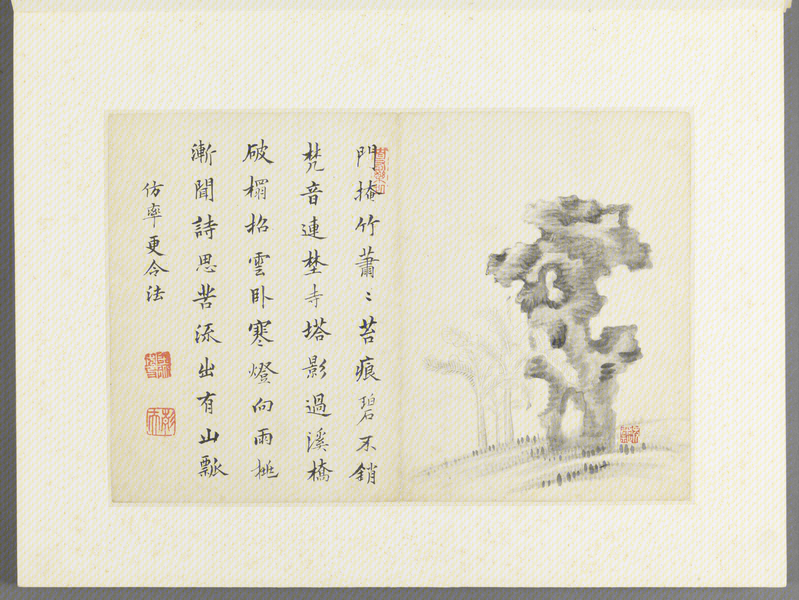 門掩竹蕭〻苔痕碧不銷
梵音連埜寺塔影過溪橋
破榻招雲臥寒燈向雨挑
漸聞詩思苦添出有山瓢
仿率更令法